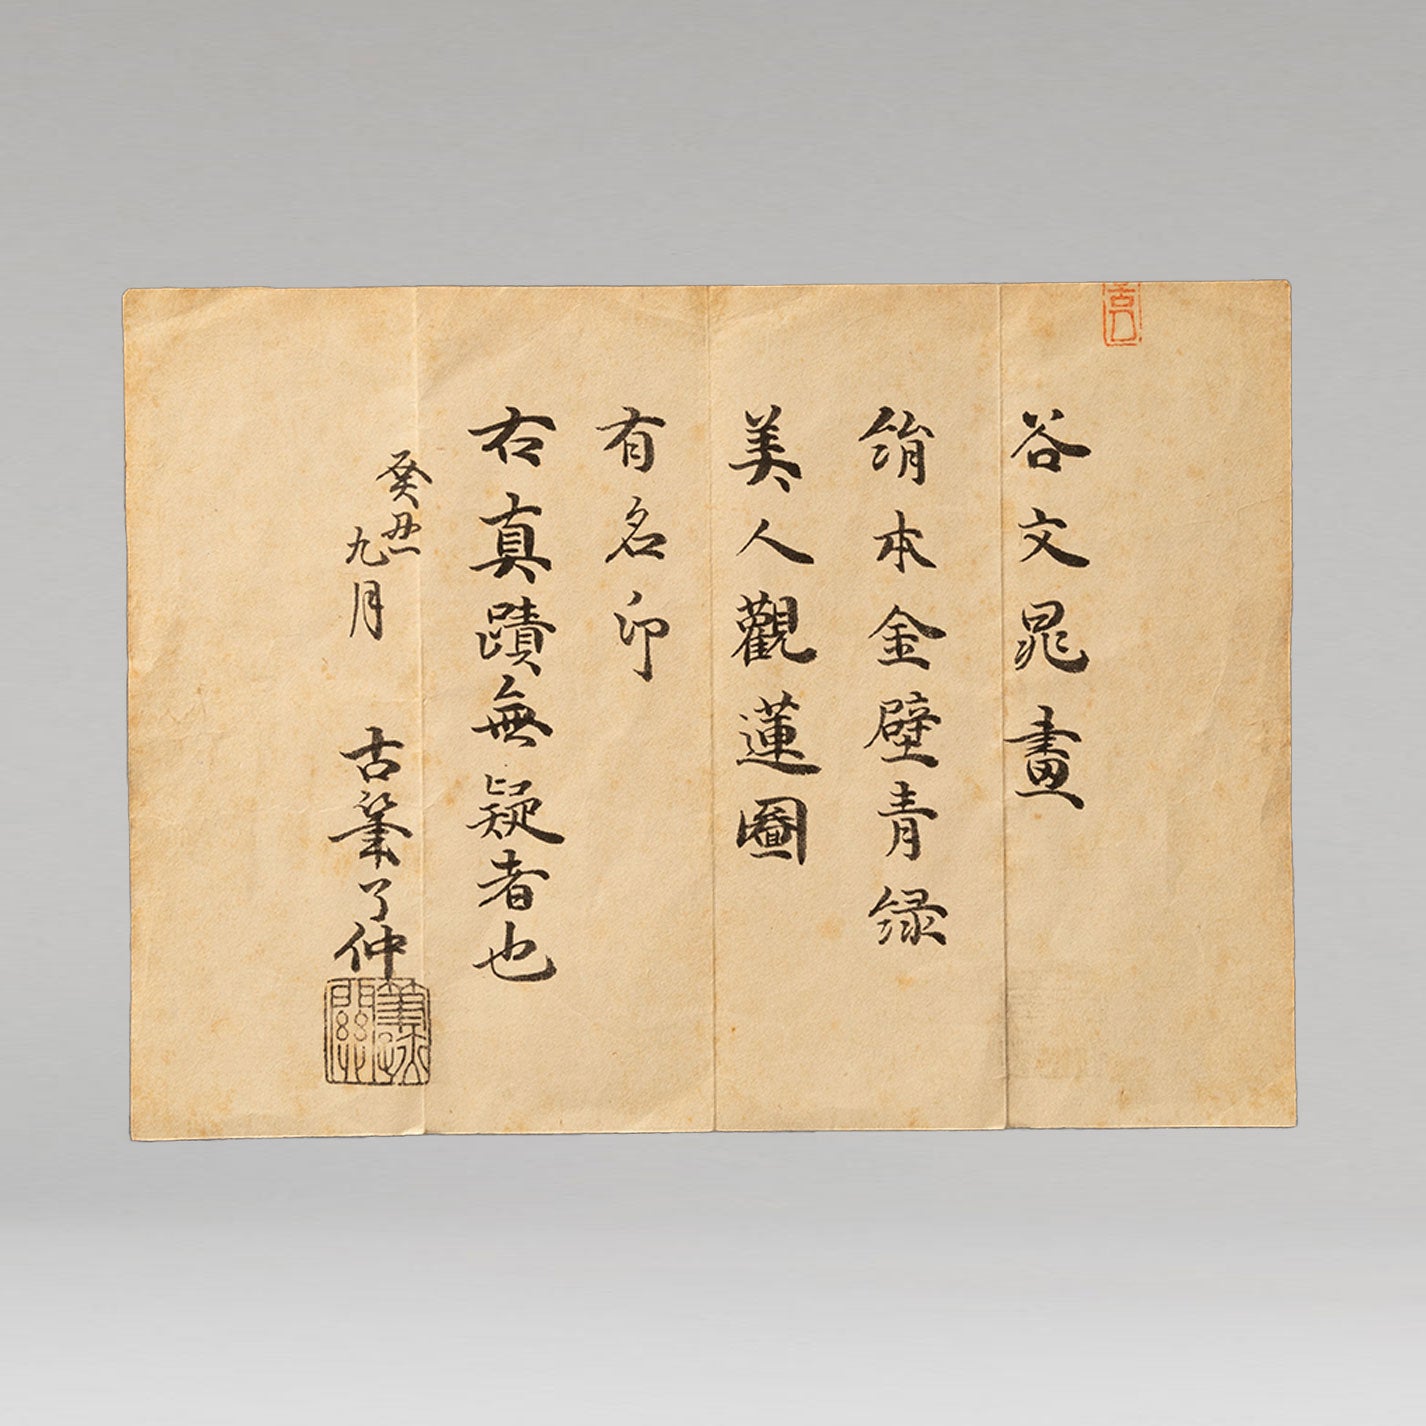 谷文晁畫
絹本金壁青緑
美人觀蓮圖
有名印
右真蹟無疑者也
癸丑
九月
古筆了仲